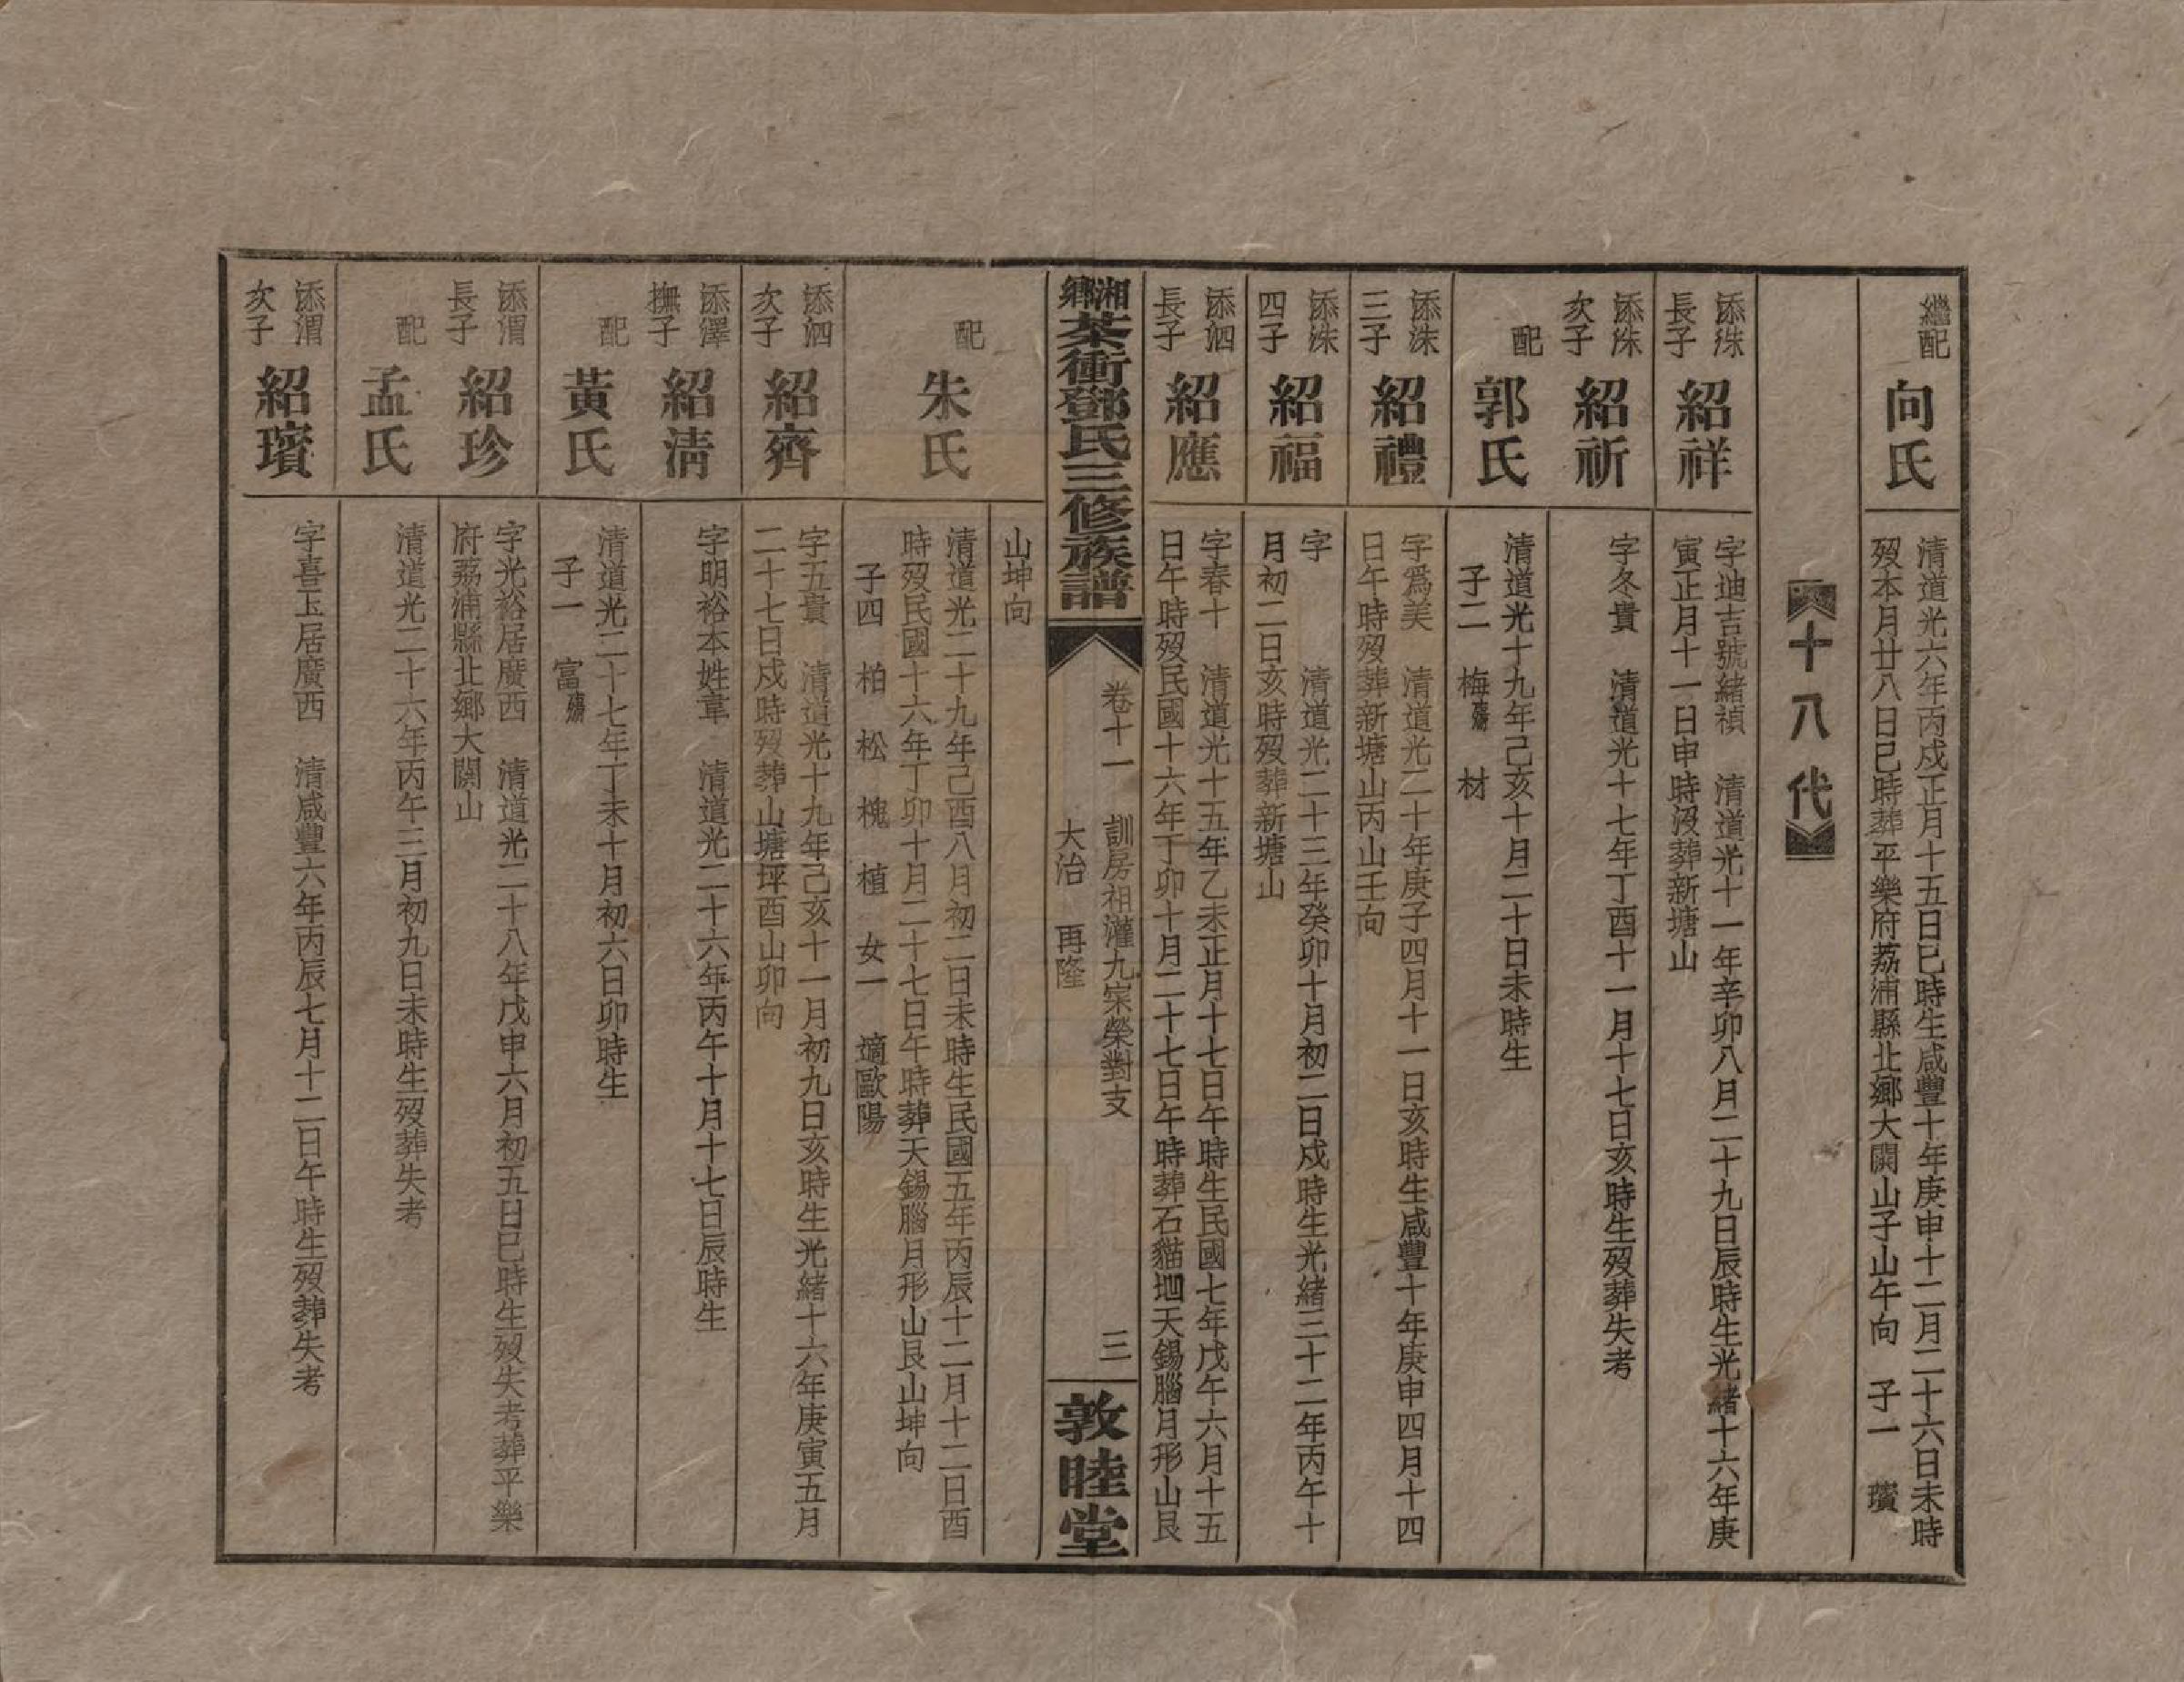 繼配
向氏
清道光六年丙戍正月十五日巳時生咸豐十年庚申十二月二十六日未時
歿本月廿八日巳時葬平樂府荔浦縣北鄉大閑山子山午向　子一　璸
十八代
添洙
長子
紹祥
字迪吉號緒禎　清道光十一年辛卯八月二十九日辰時生光緒十六年庚
寅正月十一日申時沒葬新塘山
添洙
次子
紹祈
字冬貴　清道光十七年丁酉十一月十七日亥時生歿葬失考
配
郭氏
清道光十九年己亥十月二十日未時生
子二　梅殤　材
添洙
三子
紹禮
字爲美　清道光二十年庚子四月十一日亥時生咸豐十年庚申四月十四
日午時歿葬新塘山丙山壬向
添洙
四子
紹福
字　清道光二十三年癸卯十月初二日戍時生光緒三十二年丙午十
月初二日亥時歿葬新塘山
添泗
長子
紹應
字春十　清道光十五年乙未正月十七日午時生民國七年戊午六月十五
日午時歿民國十六年丁卯十月二十七日午時葬石貓𡍩天錫腦月形山艮
湘鄉茶衝鄧氏三修族譜
卷十一　訓房祖灌九寀榮對支
大治　再隆
三
敦睦堂
山坤向
配
朱氏
清道光二十九年己酉八月初二日未時生民國五年丙辰十二月十二日酉
時歿民國十六年丁卯十月二十七日午時葬天錫腦月形山艮山坤向
子四　柏　松　槐　植　女一　適歐陽
添泗
次子
紹齊
字五貴　清道光十九年己亥十一月初九日亥時生光緒十六年庚寅五月
二十七日戍時歿葬山塘坪酉山卯向
添澤
撫子
紹清
字明裕本姓韋　清道光二十六年丙午十月十七日辰時生
配
黃氏
清道光二十七年丁未十月初六日卯時生
子一　富殤
添渭
長子
紹珍
字光裕居廣西　清道光二十八年戊申六月初五日巳時生歿失考葬平樂
府荔浦縣北鄉大閑山
配
孟氏
清道光二十六年丙午三月初九日未時生歿葬失考
添渭
次子
紹璸
字喜玉居廣西　清咸豐六年丙辰七月十二日午時生歿葬失考